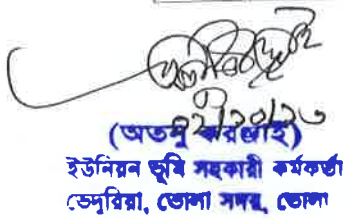 (অতনু করঞ্জাই)
ইউনিয়ন ভূমি সহকারী কর্মকর্তা
ভেদুরিয়া, ভোলা সদর, ভোলা